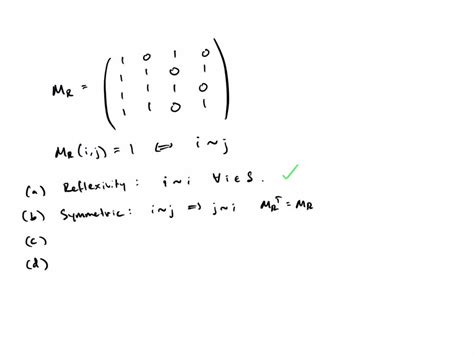 M_R = ( 1 0 1 0
1 1 0 1
1 1 1 0
1 1 0 1 )
M_R (i,j) = 1 ⇔ i ~ j
(a) Reflexivity : i ~ i ∀ i ∈ S . ✓
(b) Symmetric : i ~ j ⇒ j ~ i M_R^T = M_R
(c)
(d)